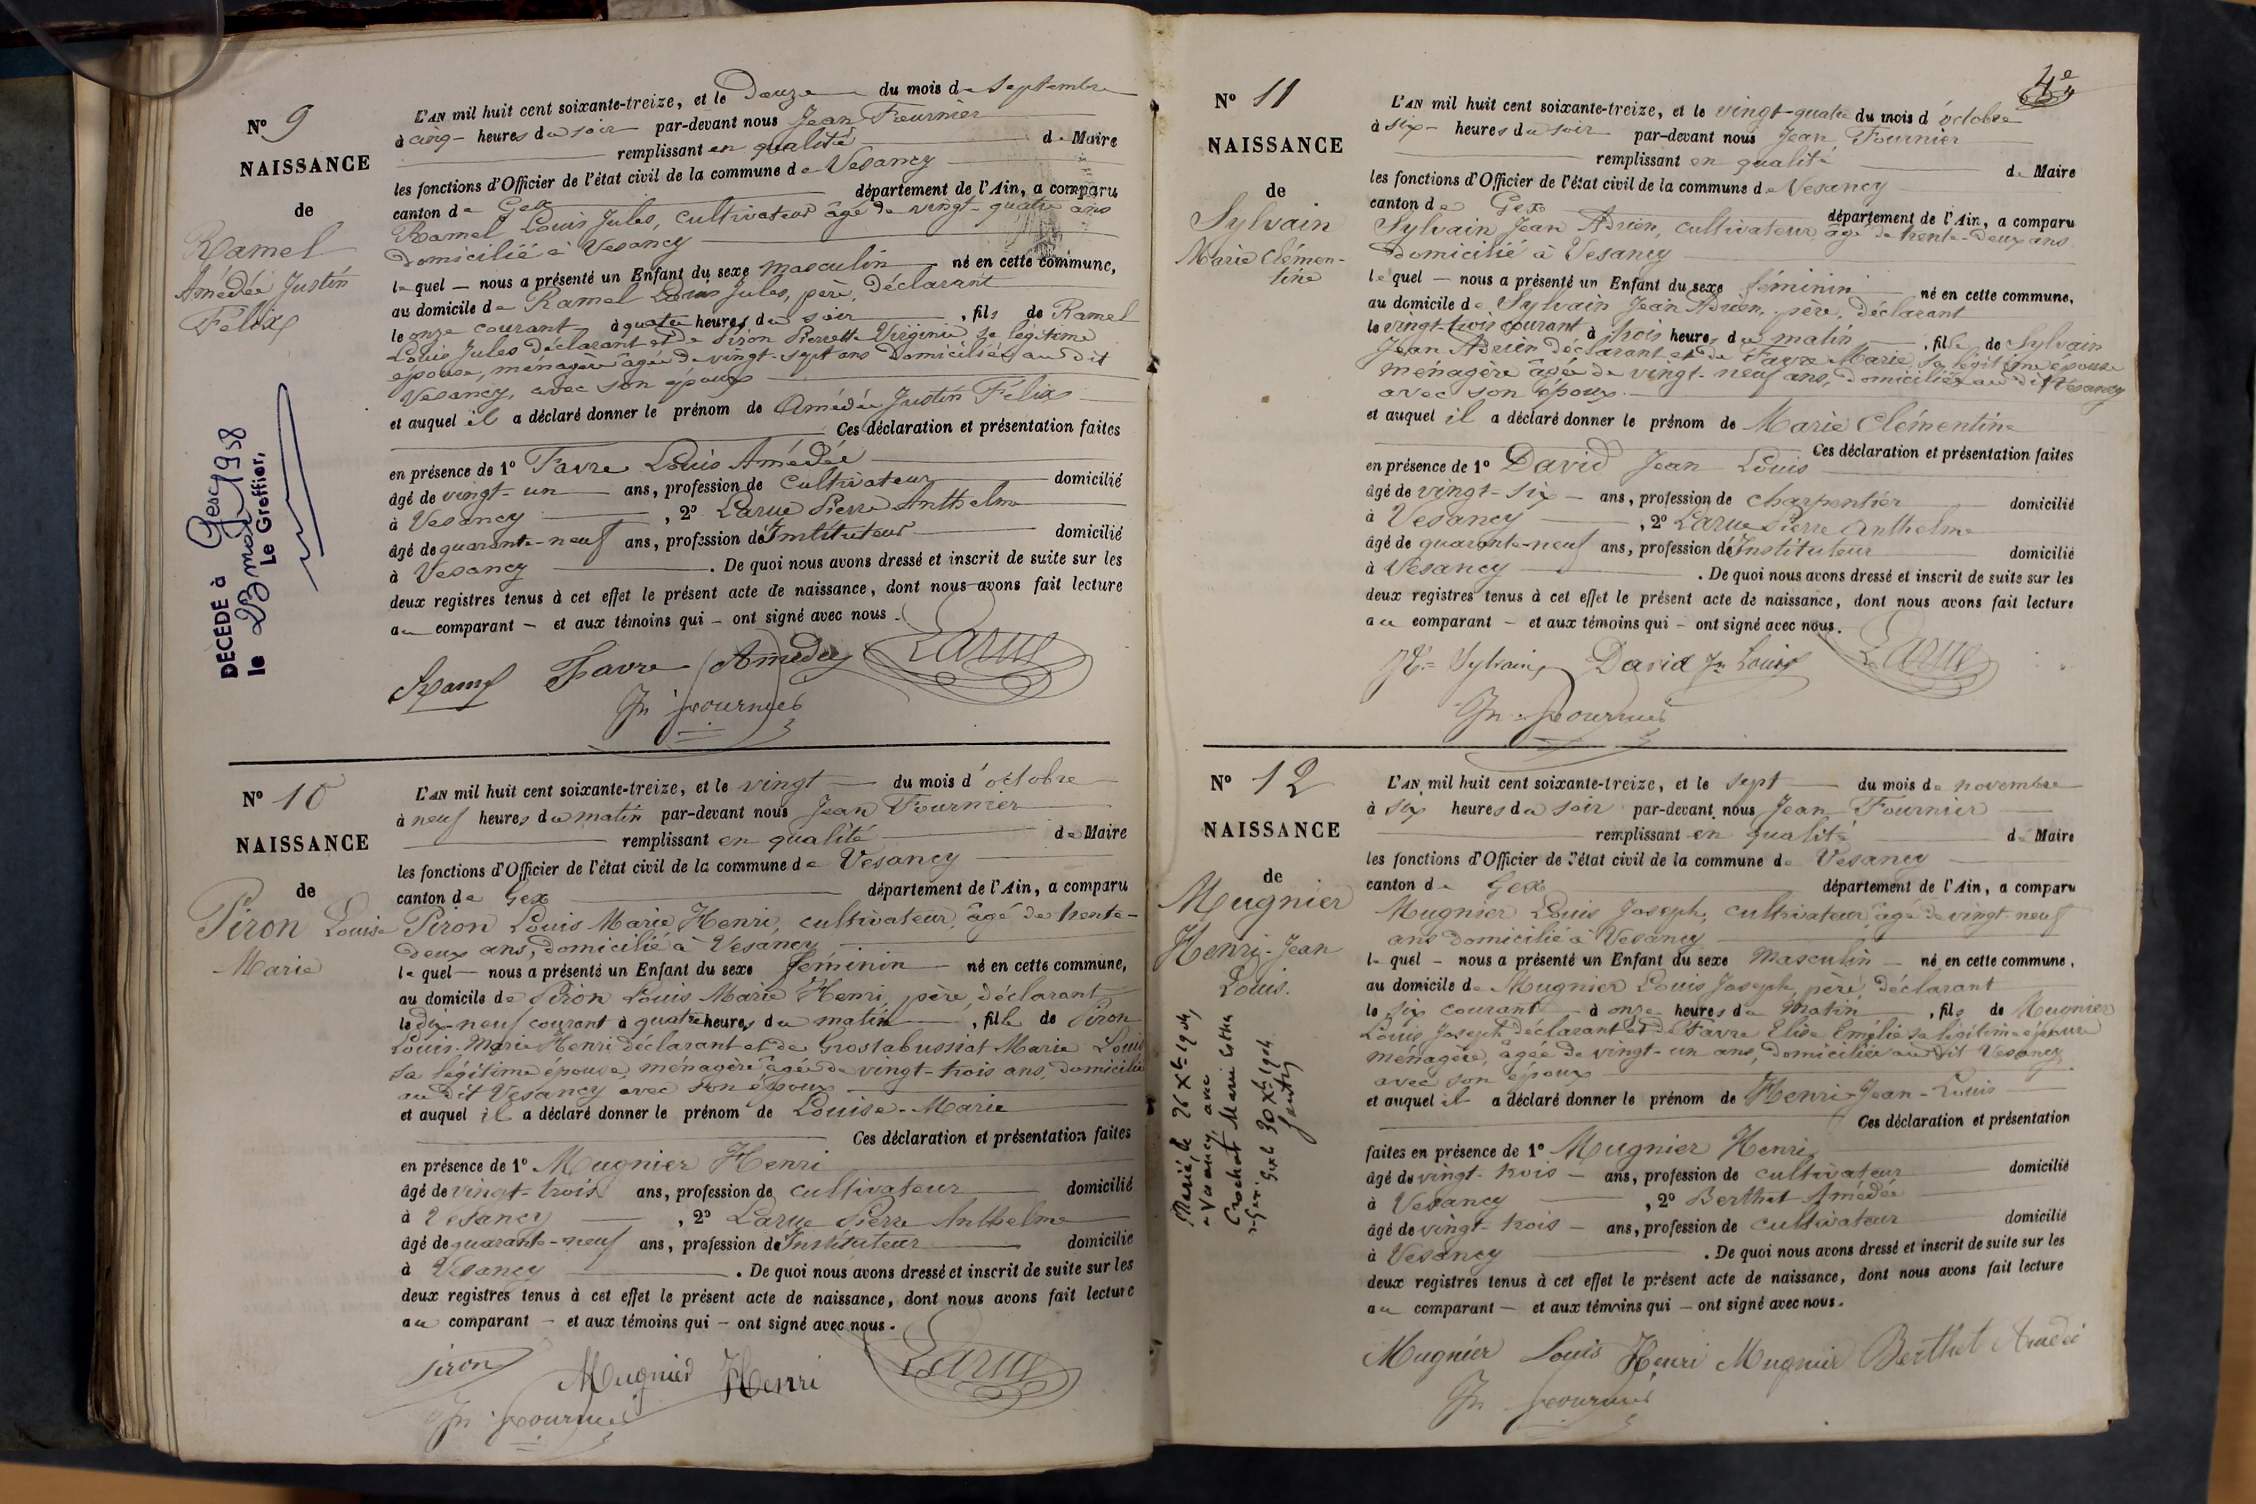 N° 9
NAISSANCE
de
Ramel
Amédée Justin
Félix
DÉCÉDÉ à Gex
le 23 mai 1938
Le Greffier,
L'AN mil huit cent soixante-treize, et le Douze du mois de Septembre
à cinq heures du soir par-devant nous Jean Fournier
remplissant en qualité de Maire
les fonctions d'Officier de l'état civil de la commune de Vesancy
canton de Gex département de l'Ain, a comparu
Ramel Louis Jules, cultivateur âgé de vingt-quatre ans
domicilié à Vesancy
lequel nous a présenté un Enfant du sexe masculin né en cette commune,
au domicile de Ramel Louis Jules, père, déclarant
le onze courant à quatre heures du soir, fils de Ramel
Louis Jules déclarant et de Piron Pierrette Virginie sa légitime
épouse, ménagère âgée de vingt-sept ans domiciliée au dit
Vesancy, avec son époux
et auquel il a déclaré donner le prénom de Amédée Justin Félix
Ces déclaration et présentation faites
en présence de 1° Favre Louis Amédée
âgé de vingt-un ans, profession de cultivateur domicilié
à Vesancy, 2° Larue Pierre Anthelme
âgé de quarante-neuf ans, profession d'Instituteur domicilié
à Vesancy. De quoi nous avons dressé et inscrit de suite sur les
deux registres tenus à cet effet le présent acte de naissance, dont nous avons fait lecture
au comparant – et aux témoins qui – ont signé avec nous.
Ramel Favre Amédée Larue
Jn Fournier
N° 10
NAISSANCE
de
Piron Louise
Marie
L'AN mil huit cent soixante-treize, et le vingt du mois d'octobre
à neuf heures du matin par-devant nous Jean Fournier
remplissant en qualité de Maire
les fonctions d'Officier de l'état civil de la commune de Vesancy
canton de Gex département de l'Ain, a comparu
Piron Louis Marie Henri, cultivateur, âgé de trente-
deux ans, domicilié à Vesancy
lequel – nous a présenté un Enfant du sexe féminin né en cette commune,
au domicile de Piron Louis Marie Henri, père, déclarant
le dix-neuf courant à quatre heures du matin, fille de Piron
Louis-Marie Henri déclarant et de Grostabussiat Marie Louise
sa légitime épouse, ménagère âgée de vingt-trois ans, domiciliée
au dit Vesancy avec son époux
et auquel il a déclaré donner le prénom de Louise-Marie
Ces déclaration et présentation faites
en présence de 1° Mugnier Henri
âgé de vingt-trois ans, profession de cultivateur domicilié
à Vesancy, 2° Larue Pierre Anthelme
âgé de quarante-neuf ans, profession d'Instituteur domicilié
à Vesancy. De quoi nous avons dressé et inscrit de suite sur les
deux registres tenus à cet effet le présent acte de naissance, dont nous avons fait lecture
au comparant – et aux témoins qui – ont signé avec nous.
Piron Mugnier Henri Larue
Jn Fournier
4e
N° 11
NAISSANCE
de
Sylvain
Marie Clémen-
tine
L'AN mil huit cent soixante-treize, et le vingt-quatre du mois d'octobre
à six heures du soir par-devant nous Jean Fournier
remplissant en qualité de Maire
les fonctions d'Officier de l'état civil de la commune de Vesancy
canton de Gex département de l'Ain, a comparu
Sylvain Jean Adrien, cultivateur, âgé de trente-deux ans
domicilié à Vesancy
lequel – nous a présenté un Enfant du sexe féminin né en cette commune,
au domicile de Sylvain Jean Adrien, père, déclarant
le vingt-trois courant à trois heures du matin, fille de Sylvain
Jean Adrien déclarant et de Favre Marie sa légitime épouse
ménagère âgée de vingt-neuf ans, domiciliée au dit Vesancy
avec son époux
et auquel il a déclaré donner le prénom de Marie Clémentine
Ces déclaration et présentation faites
en présence de 1° David Jean Louis
âgé de vingt-six ans, profession de charpentier domicilié
à Vesancy, 2° Larue Pierre Anthelme
âgé de quarante-neuf ans, profession d'Instituteur domicilié
à Vesancy. De quoi nous avons dressé et inscrit de suite sur les
deux registres tenus à cet effet le présent acte de naissance, dont nous avons fait lecture
au comparant – et aux témoins qui – ont signé avec nous.
Sylvain David Jn Louis Larue
Jn Fournier
N° 12
NAISSANCE
de
Mugnier
Henri-Jean
Louis.
Marié, le 26 Xbre 1904
à Vesancy, avec
Crochat Marie Esther
Gex le 30 Xbre 1904
L'AN mil huit cent soixante-treize, et le sept du mois de novembre
à six heures du soir par-devant nous Jean Fournier
remplissant en qualité de Maire
les fonctions d'Officier de l'état civil de la commune de Vesancy
canton de Gex département de l'Ain, a comparu
Mugnier Louis Joseph, cultivateur, âgé de vingt-neuf
ans domicilié à Vesancy
lequel – nous a présenté un Enfant du sexe Masculin né en cette commune,
au domicile de Mugnier Louis Joseph, père, déclarant
le six courant à onze heures du Matin, fils de Mugnier
Louis Joseph déclarant et de Favre Elise Emélie sa légitime épouse
ménagère, âgée de vingt-un ans, domiciliée au dit Vesancy
avec son époux
et auquel il a déclaré donner le prénom de Henri-Jean-Louis
Ces déclaration et présentation
faites en présence de 1° Mugnier Henri
âgé de vingt-trois ans, profession de cultivateur domicilié
à Vesancy, 2° Berthet Amédée
âgé de vingt-trois ans, profession de cultivateur domicilié
à Vesancy. De quoi nous avons dressé et inscrit de suite sur les
deux registres tenus à cet effet le présent acte de naissance, dont nous avons fait lecture
au comparant – et aux témoins qui – ont signé avec nous.
Mugnier Louis Henri Mugnier Berthet Amédé
Jn Fournier